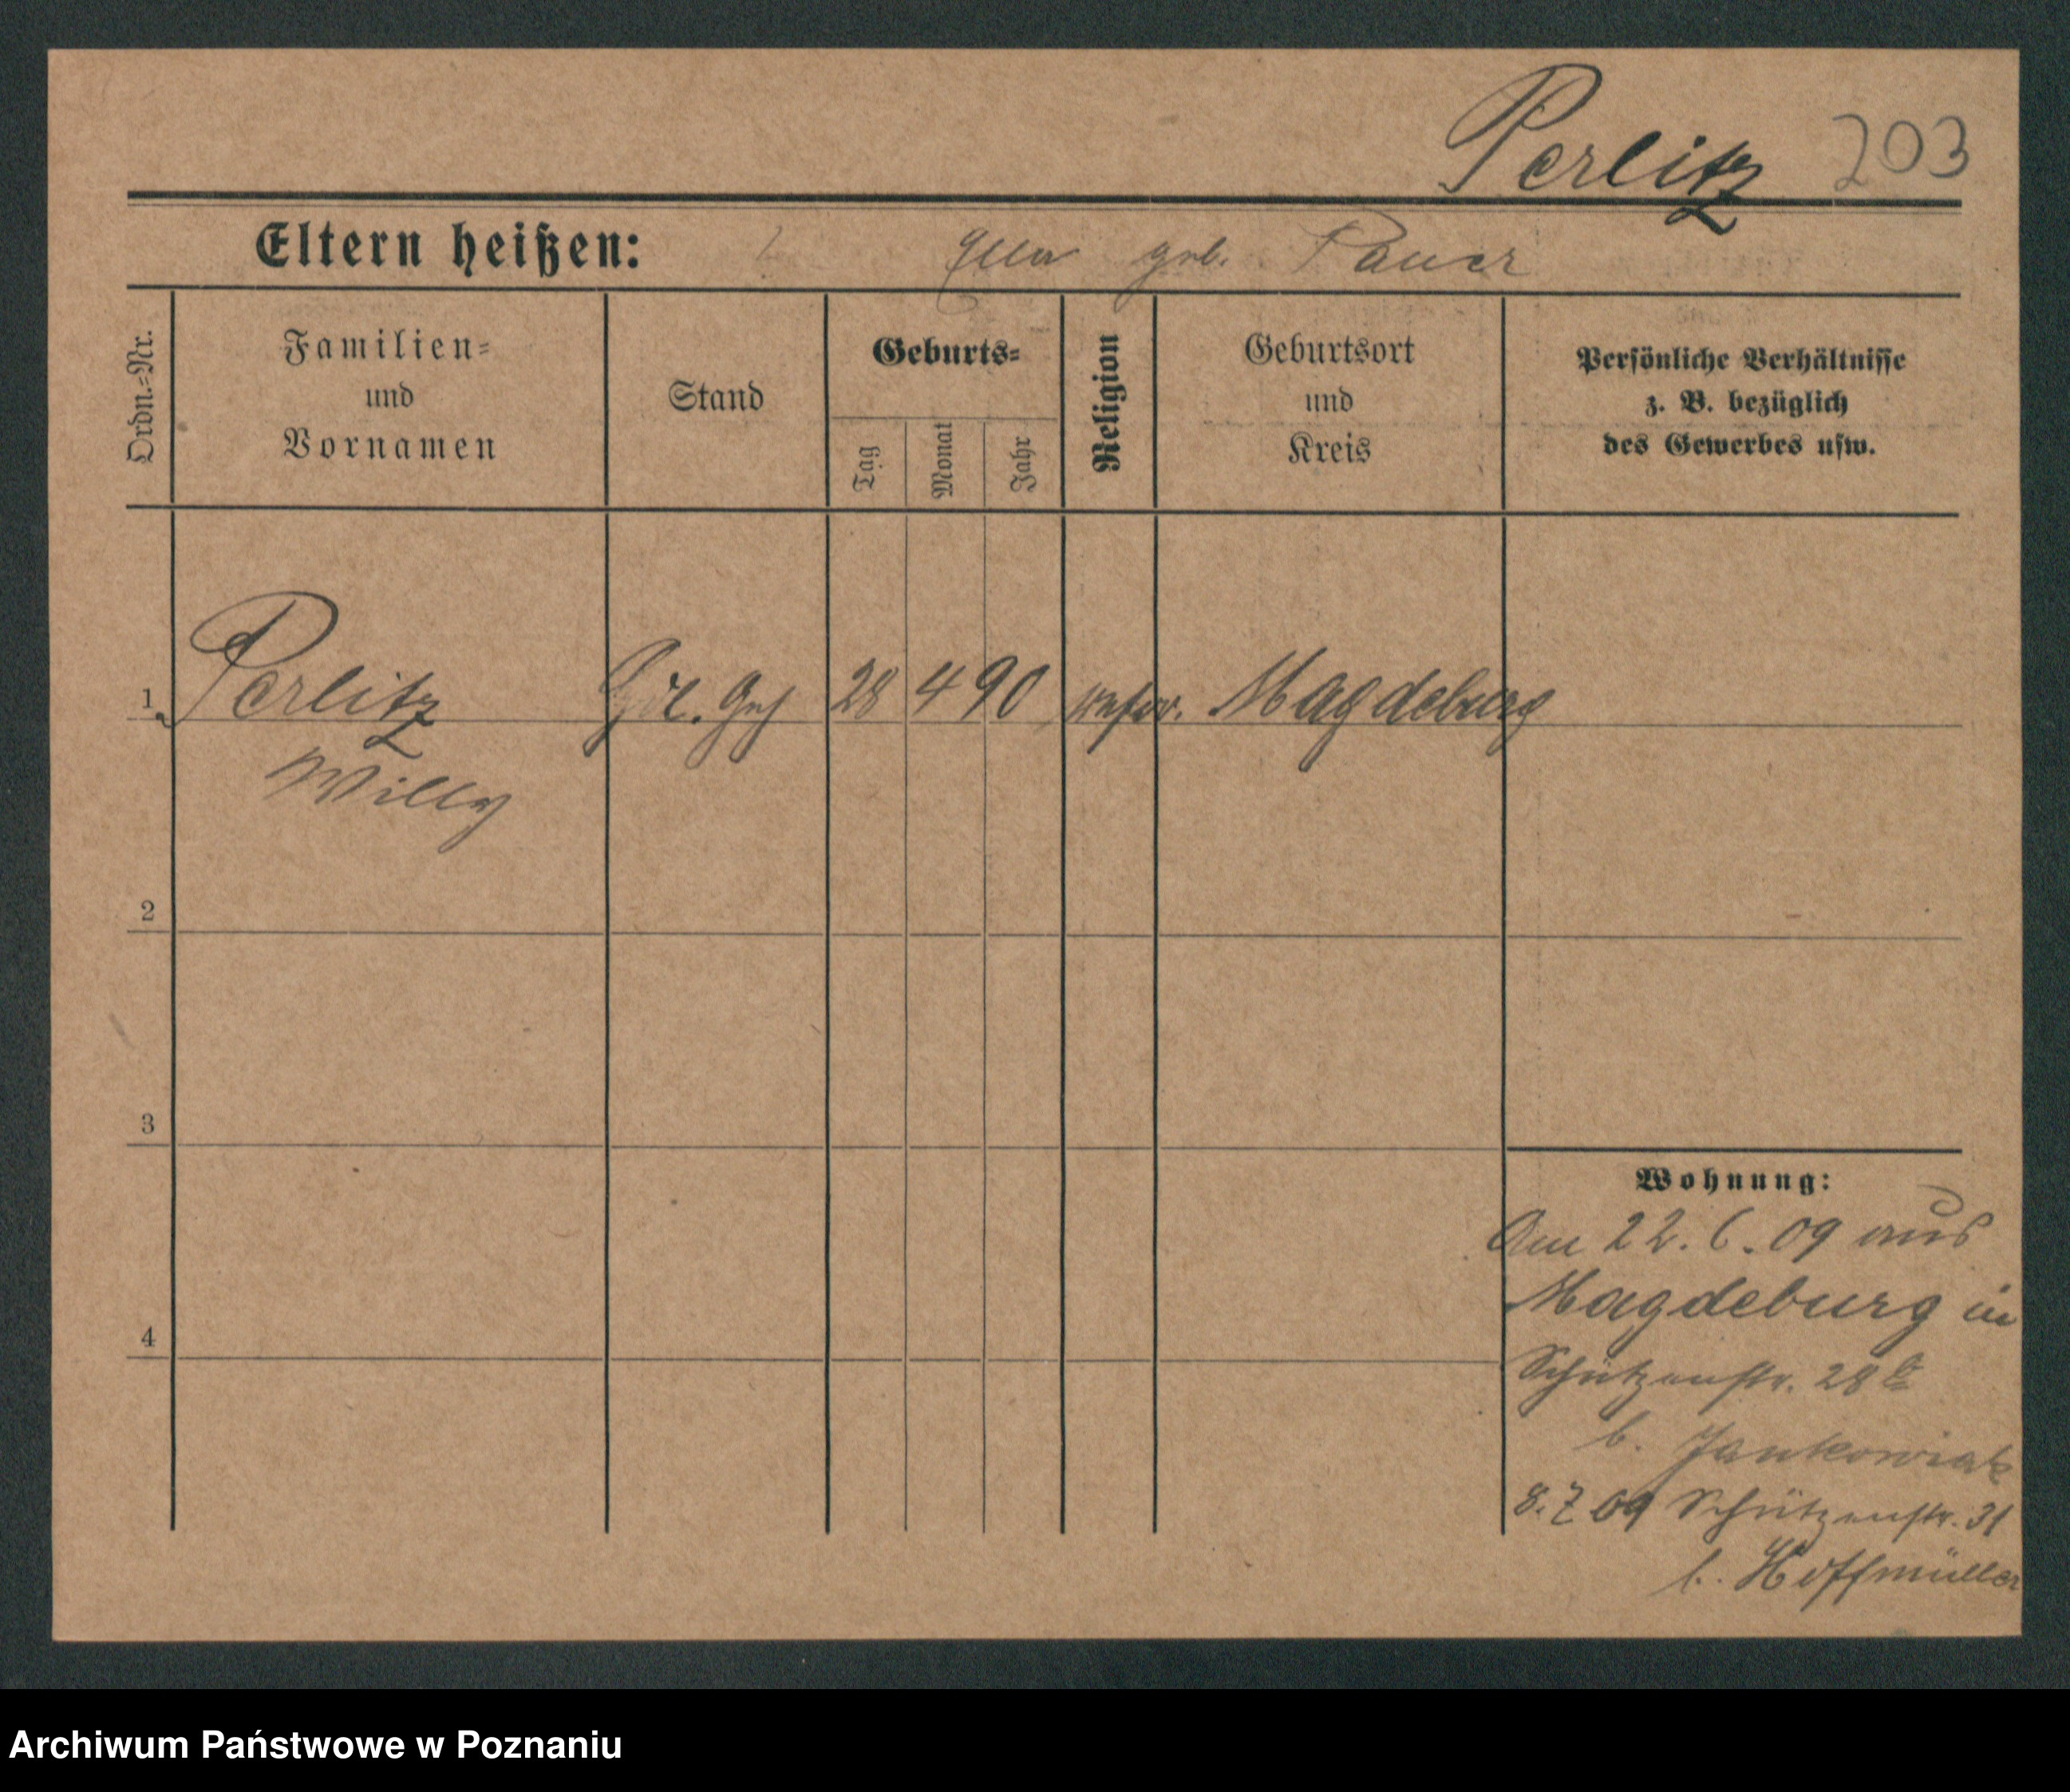 Perlitz 203
Eltern heißen: Ella geb. Pauer
Ordn.=Nr.
Familien=
und
Vornamen
Stand
Geburts=
Tag
Monat
Jahr
Religion
Geburtsort
und
Kreis
Persönliche Verhältnisse
z. B. bezüglich
des Gewerbes usw.
1 Perlitz 28 4 90 Magdeburg
Willy
2
3
4
Wohnung:
Am 22. 6. 09 aus
Magdeburg in
Schützenstr. 28
b. Jankowiak
8. 7 09 Schützenstr. 31
b. Hoffmüller
Archiwum Państwowe w Poznaniu